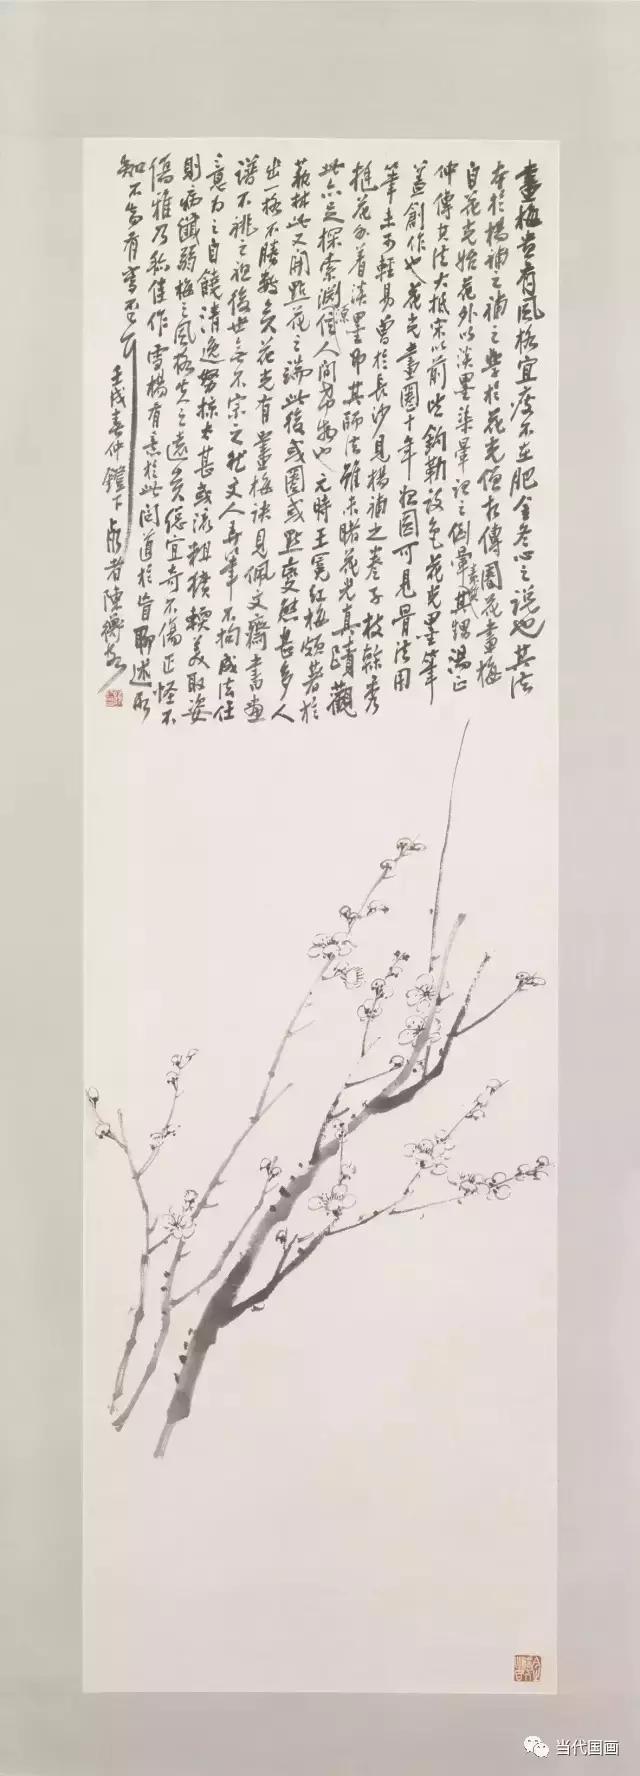 畫梅貴有風格宜瘦不在肥金冬心之說也其法
本於楊補之補之學於花光但古傳圈花畫梅
自花光始花外以淡墨染暈記之倒暈其甥湯正
仲傳其法大抵宋以前皆鈎勒設色花光墨筆
蓋創作也花光畫圈十年 圈可見骨法用
筆未可輕易曾於長沙見楊補之卷子枝榦秀
挺花外着淡墨即其師法雖未睹花光真蹟觀
此亦足探索淵源 人間希物也元時王冕紅梅頗著於
藝林此又開點花之端此後或圈或點變態甚多人
出一格不勝數矣花光有畫梅訣見佩文齋書畫
譜不祧之祖後世無不宗之然文人弄筆不拘成法任
意為之自饒清逸努掠太甚或流粗獷輭美取姿
則病纖弱梅之風格失之遠矣總宜奇不傷正怪不
傷雅乃稱佳作雪楊有意於此問道於盲聊述所
知不知有當否
壬戌春仲鐙下 者陳
当代国画